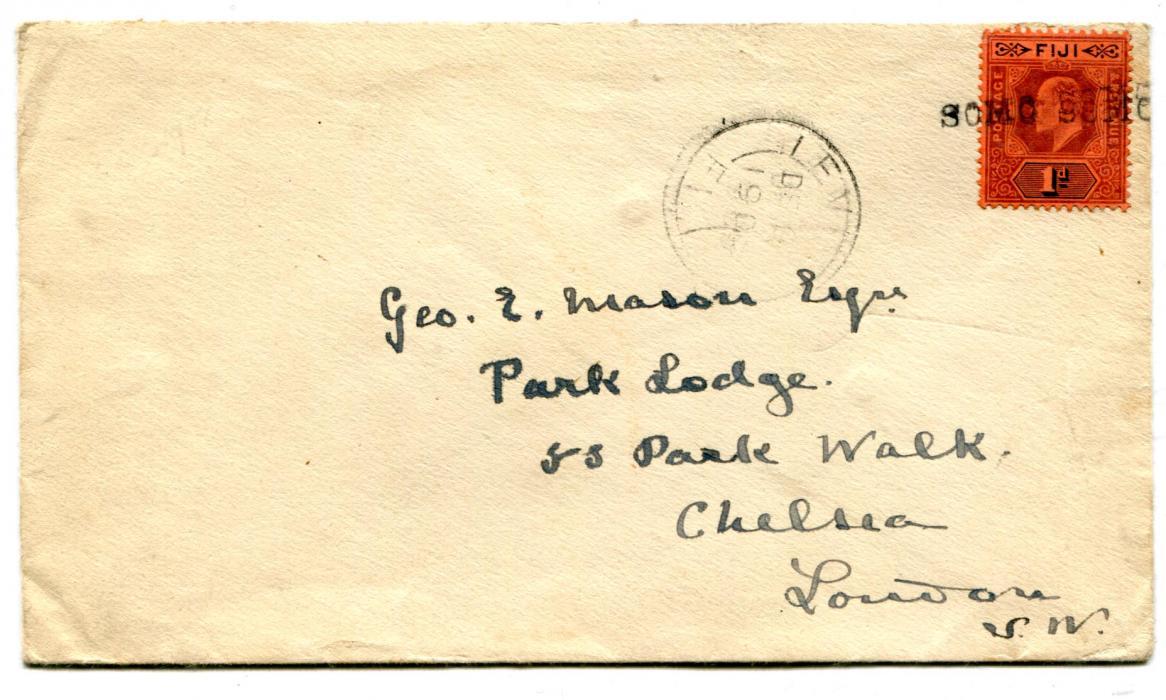 FIJI
POSTAGE & REVENUE
1d
SOMO SOMO
LEV
FIJI
Geo. E. Mason Esqre
Park Lodge.
55 Park Walk.
Chelsea
London
S. W.